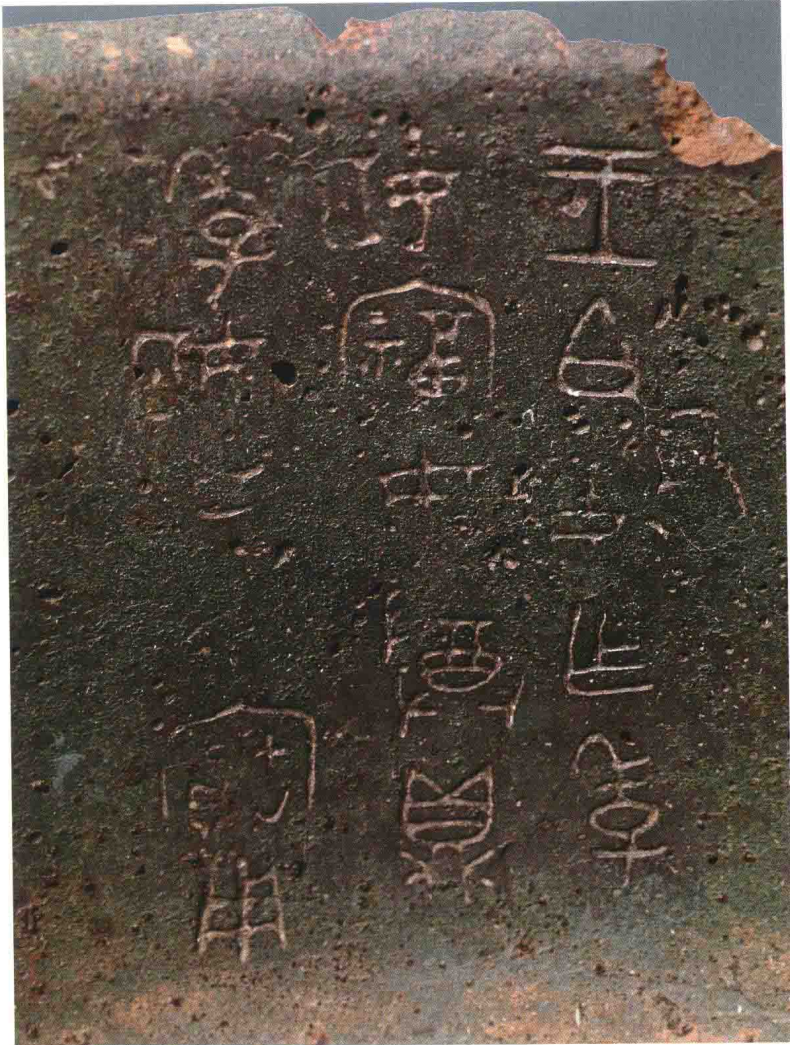 王白姜乍季
姬福母尊鼎
季姬其永寶用